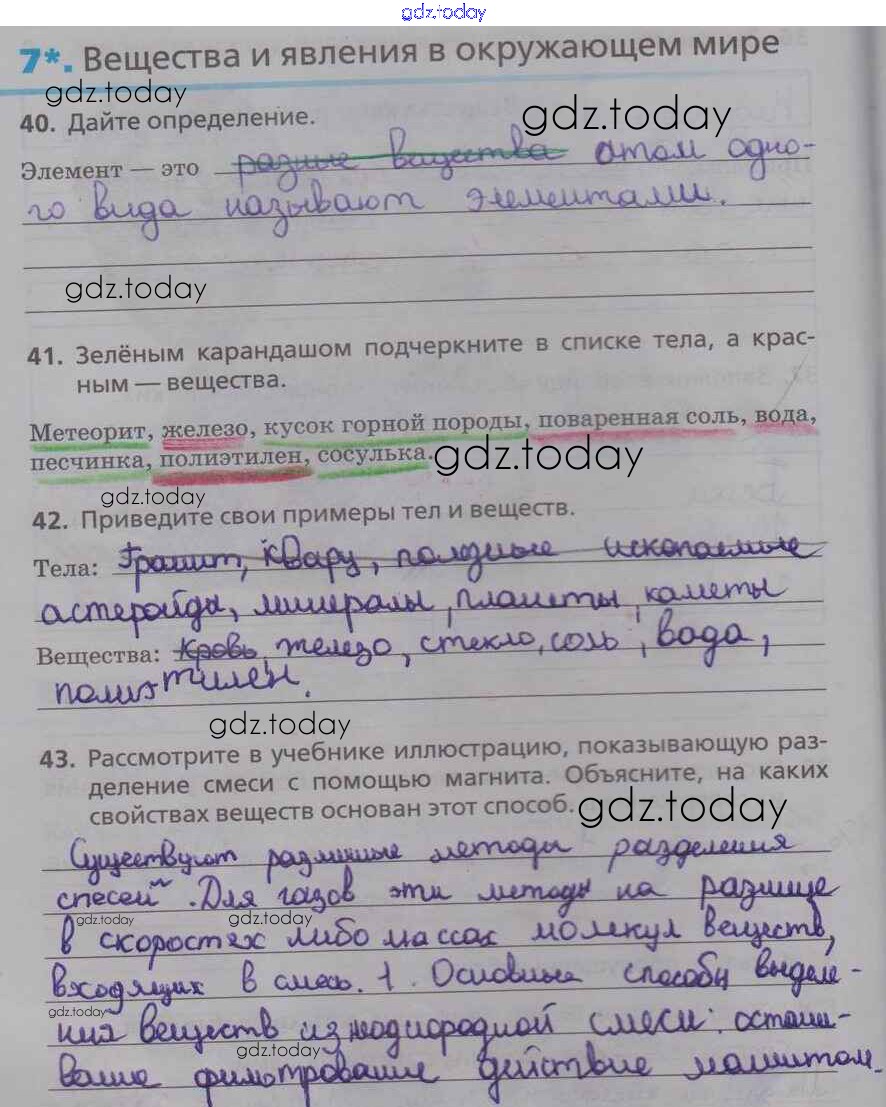 gdz.today
7*. Вещества и явления в окружающем мире
gdz.today
gdz.today
40. Дайте определение.
Элемент — это разные вещества атом одно-
го вида называют элементами.
gdz.today
41. Зелёным карандашом подчеркните в списке тела, а крас-
ным — вещества.
Метеорит, железо, кусок горной породы, поваренная соль, вода,
песчинка, полиэтилен, сосулька.
gdz.today
gdz.today
42. Приведите свои примеры тел и веществ.
Тела: Гранит, кварц, полезные ископаемые
астеройды, минералы, планеты, каметы
Вещества: Кровь железо, стекло, соль, вода,
полиэтилен.
gdz.today
43. Рассмотрите в учебнике иллюстрацию, показывающую раз-
деление смеси с помощью магнита. Объясните, на каких
свойствах веществ основан этот способ.
gdz.today
Существуют различные методы разделения
спесей. Для газов эти методы на разнице
gdz.today
gdz.today
в скоростях либо массах молекул веществ,
входящих в смесь. 1. Основные способы выделе-
gdz.today
ния веществ из неоднородной смеси: отстаи-
gdz.today
вание фильтрование действие магнитом.